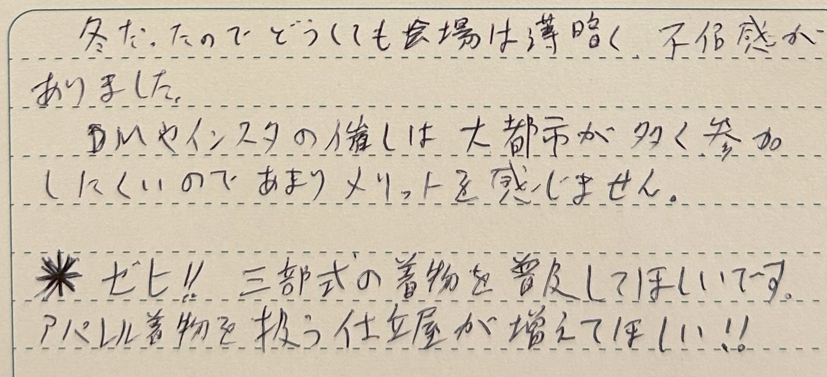 冬だったのでどうしても会場は薄暗く、不信感が
ありました。
DMやインスタの催しは大都市が多く参加
しにくいのであまりメリットを感じません。
＊ ゼヒ!! 三部式の着物を普及してほしいです。
アパレル着物を扱う仕立屋が増えてほしい!!